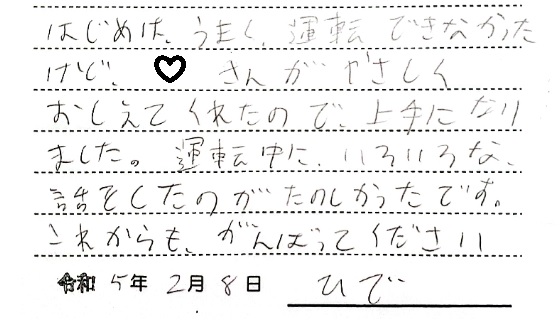 はじめは、うまく、運転 できなかった
けど、♡ さんが やさしく
おしえてくれたので、上手になり
ました。運転中に、いろいろな、
話をしたのがたのしかったです。
これからも、がんばってください
令和 5年 2月 8日 ひで